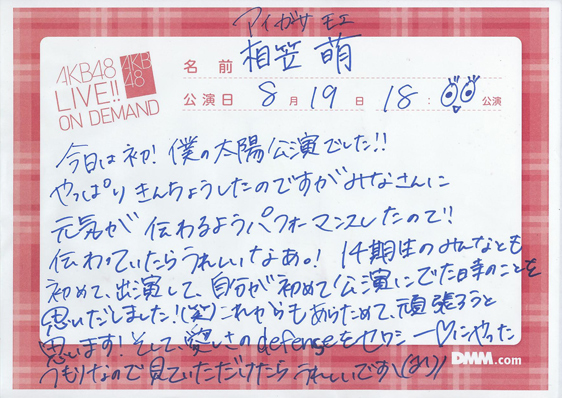 アイガサ モエ
AKB48
LIVE!!
ON DEMAND
AKB
48
名前 相笠 萌
公演日 8月19日 18: 公演
今日は初! 僕の太陽公演でした!!
やっぱりきんちょうしたのですがみなさんに
元気が 伝わるようパフォーマンスしたので!!
伝わっていたらうれしいなあ。! 14期生のみんなとも
初めて、出演して、自分が初めて公演にでた日のことを
思いだしました!(笑)これからもあらためて、頑張ろうと
思います! そして、愛しさのdefenseをセクシー♡にやった
つもりなので見ていただけたら うれしいです\(^o^)/
DMM.com